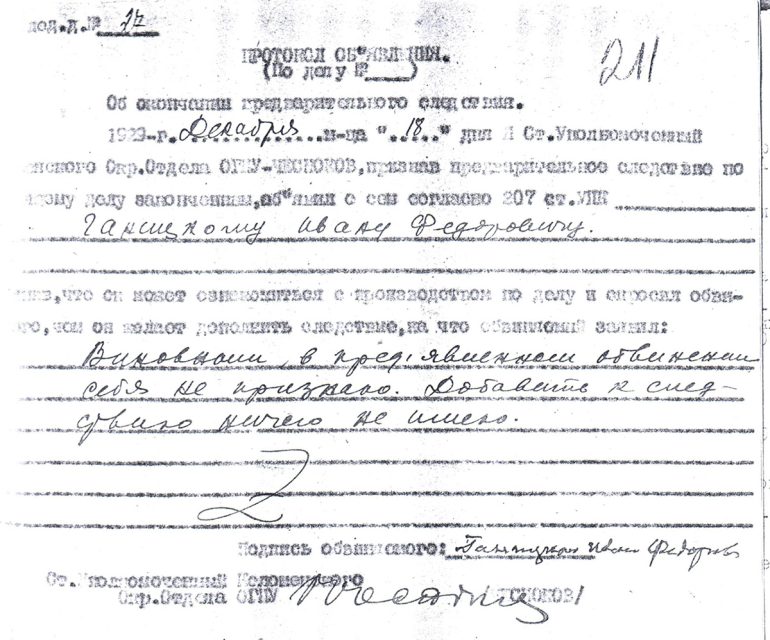 211
ПРОТОКОЛ ОБ"ЯВЛЕНИЯ.
(По делу №____)
Об окончании предварительного следствия.
1929-г. Декабря м-ца "..18.." дня Я Ст.Уполномоченный
енского Окр.Отдела ОГПУ-ЧЕСНОКОВ,признав предварительное следствие по
делу законченным,об"явил о сем согласно 207 ст.УПК
Ивану Федоровичу.
что он может ознакомиться с производством по делу и спросил обви-
го,чем он желает дополнить следствие,на что обвиняемый заявил:
Виновным в пред'явленном обвинении
себя не признаю. Добавить к след-
ствию ничего не имею.
Подпись обвиняемого: Иван Федоров
Ст.Уполномоченный Коломенского
Окр.Отдела ОГПУ /ЧЕСНОКОВ/